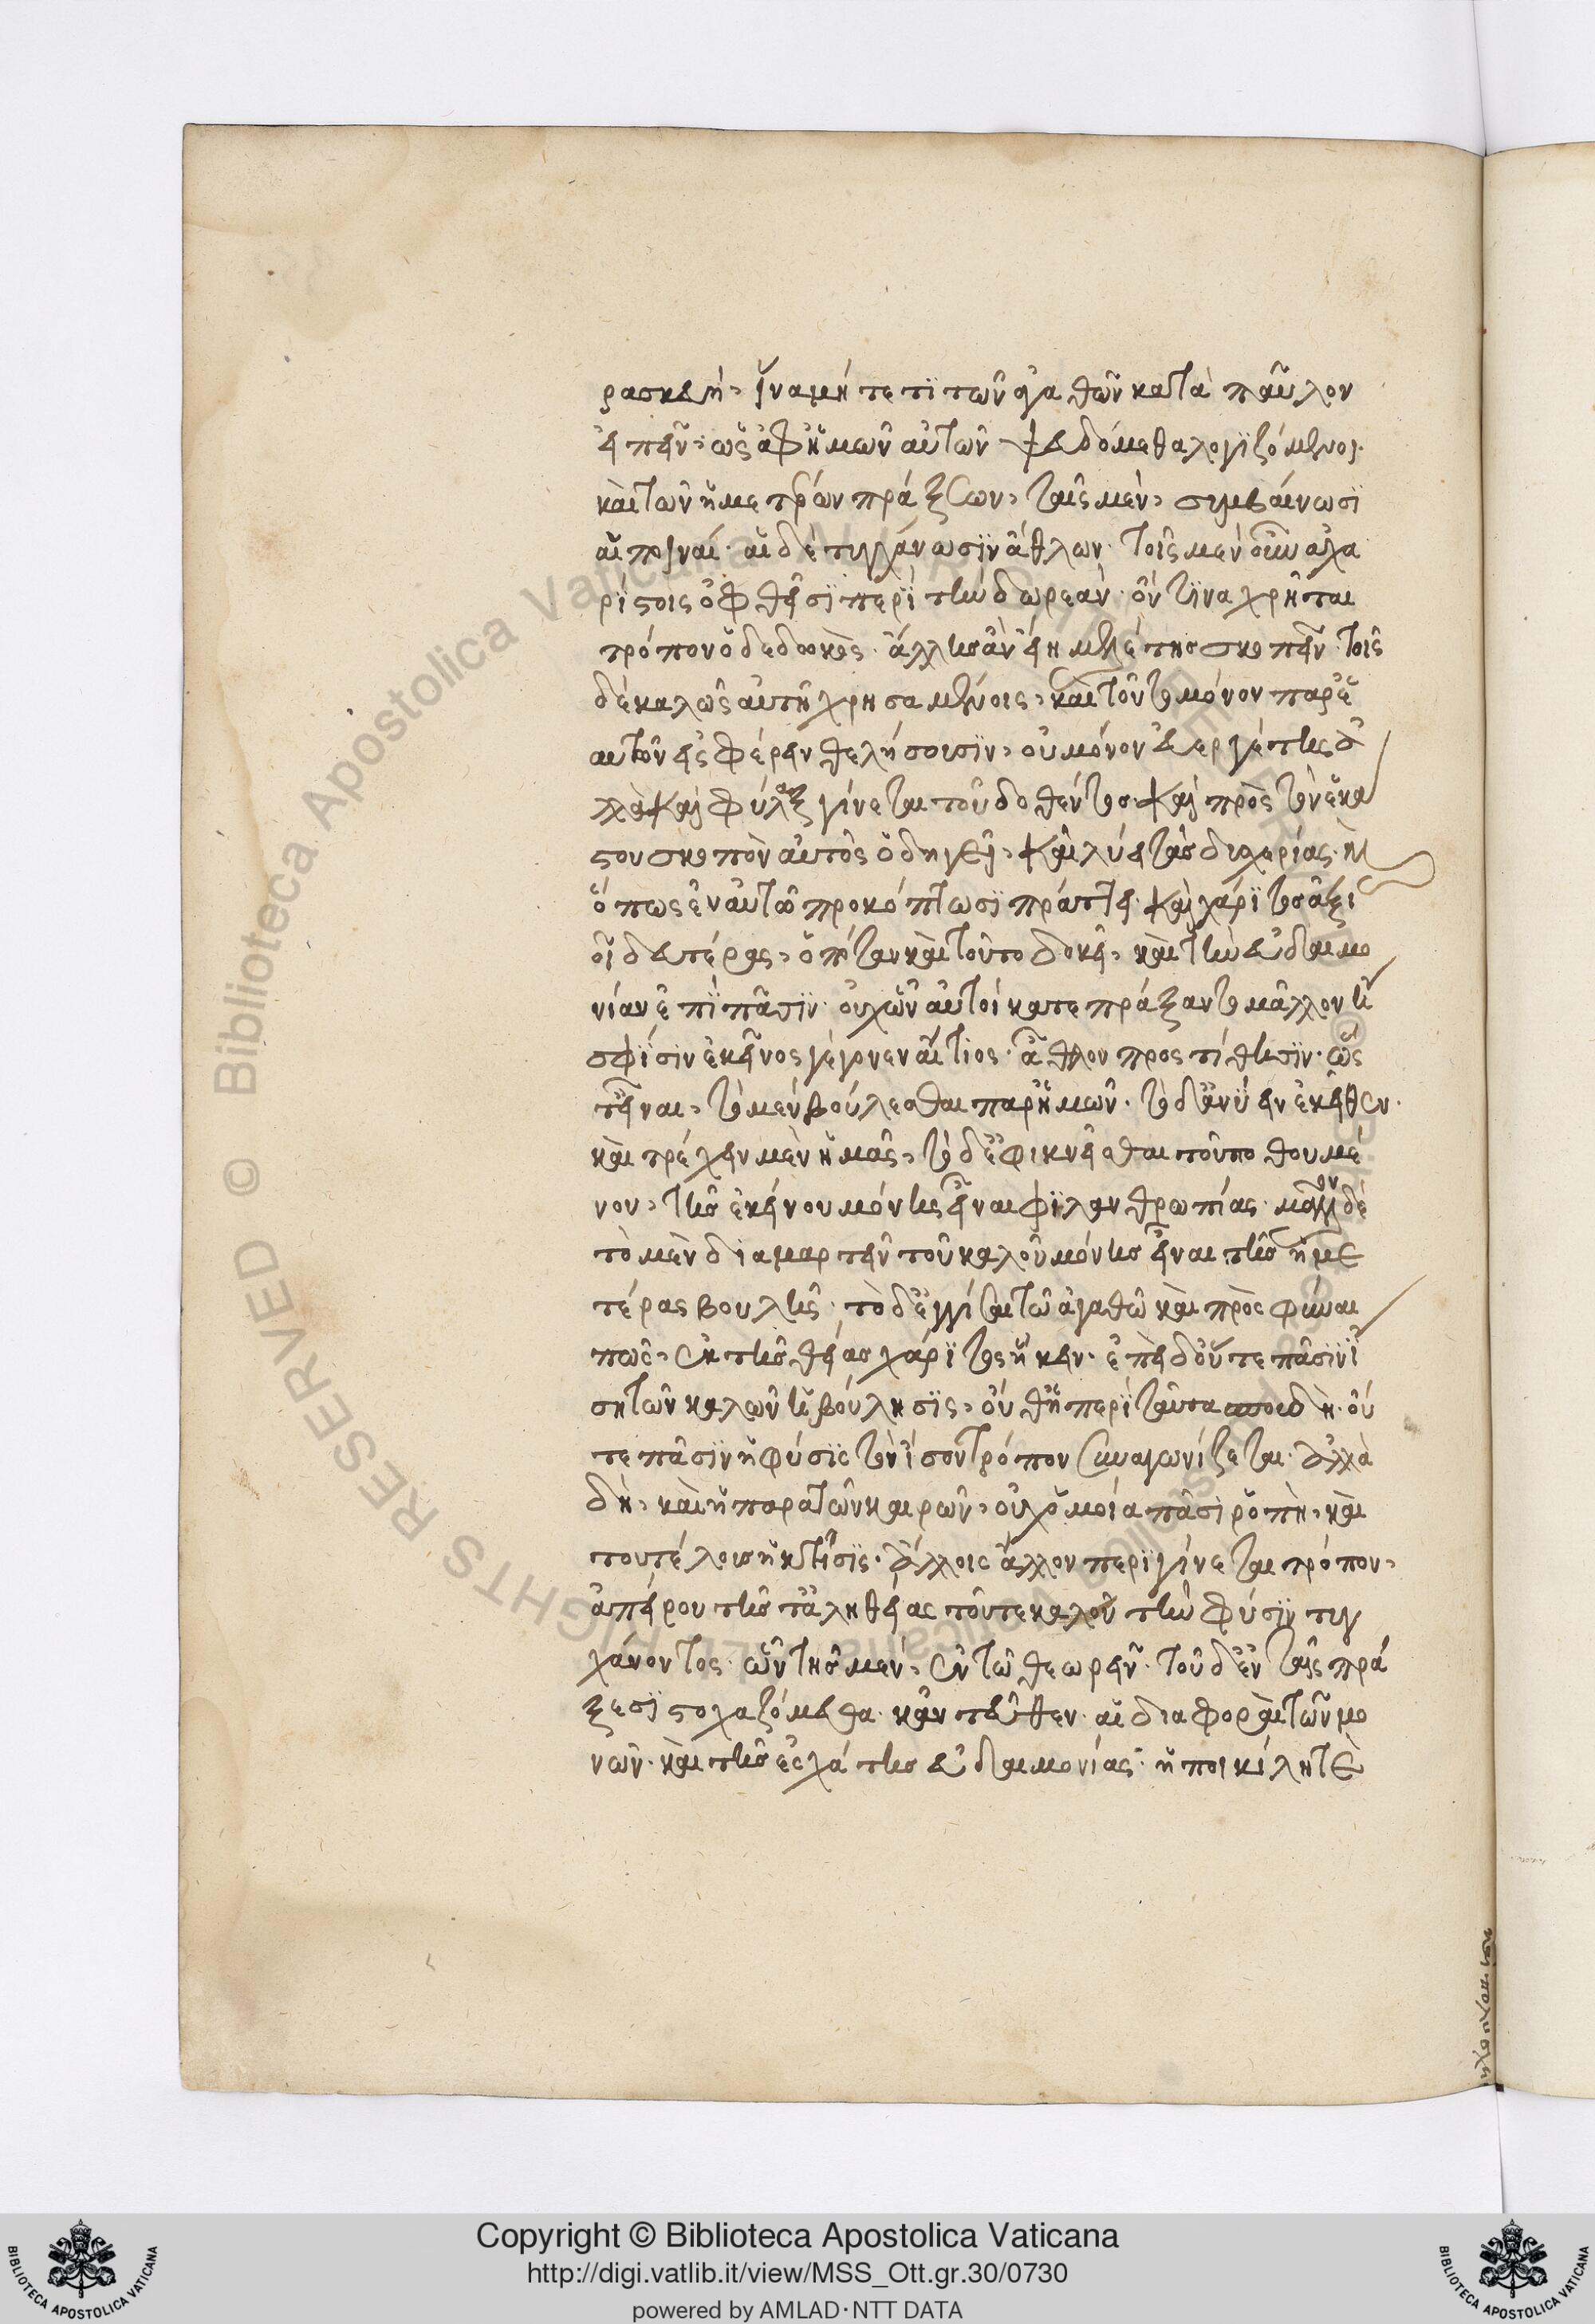 ρασκευή, ἵνα μή τέ τι τῶν ἀγαθῶν κατὰ παῦλον
εἰπεῖν, ὡς ἀφ' ἡμῶν αὐτῶν ψευδόμεθα λογιζόμενοι.
καὶ τῶν ἡμετέρων πράξεων, ταῖς μὲν, συμβαίνωσι
αἱ ποιναί. αἱ δὲ τυγχάνωσιν ἄθλων. τοῖς μὲν οὖν ἀχα
ρίστοις ὀφθεῖσι περὶ τὴν δωρεὰν. ὅν τινα χρῆται
τρόπον ὁ δεδωκὼς. ἄλλης ἂν εἴη μελέτης σκοπεῖν. τοῖς
δὲ καλῶς αὐτῇ χρησαμένοις, καὶ τὸν τόμον παρ' ἑ
αυτῶν εἰσφέρειν θελήσουσιν, οὐ μόνον εὐεργέτης ἀ
λλὰ καὶ φύλαξ γίνεται τοῦ δοθέντος. καὶ πρὸς τὸν ἕκα
στου σκοπὸν αὐτὸς ὁδηγεῖ, καὶ λύει τὰς δυσχερείας. καὶ
ὅπως ἐν αὐτῷ προκόπτωσι πράττει. καὶ χάριτος ἀξι
οῖ δευτέρας, ὅπηταν καὶ τοῦτο δοκεῖ, καὶ τὴν εὐδαιμο
νίαν ἐπὶ πᾶσιν. οὐχ ὧν αὐτοὶ κατεπράξαντο μᾶλλον ἢ
σφίσιν ἐκεῖνος γέγονεν αἴτιος. ἆθλον προστίθησιν. ὡς
τ' εἶναι, τὸ μὲν βούλεσθαι παρ' ἡμῶν. τὸ δ' ἀνύειν ἐκεῖθεν.
καὶ τρέχειν μὲν ἡμᾶς, τὸ δ' ἐφικνεῖσθαι τοῦ ποθουμέ
νου, τῆς ἐκείνου μόνης εἶναι φιλανθρωπίας. μᾶλλον δὲ
τὸ μὲν διαμαρτεῖν τοῦ καλοῦ μόνης εἶναι τῆς ἡμε
τέρας βουλῆς. τὸ δ' ἐγγίσαι τῷ ἀγαθῷ καὶ προσφῦναι
πως, ἐκ τῆς θείας χάριτος ἥκειν. ἐπεὶ δ' οὔτε πᾶσιν ἴ
ση τῶν καλῶν ἡ βούλησις, οὔθ' ἡ περὶ ταῦτα σπουδὴ. οὔ
τε πᾶσιν ἡ φύσις τὸν ἴσον τρόπον συναγωνίζεται. ἀλλὰ
δὴ, καὶ ἡ παρὰ τῶν καιρῶν, οὐχ ὁμοία πᾶσι ῥοπὴ, καὶ
του τέλους ἡ κτῆσις. ἄλλοις ἄλλον περιγίνεται τρόπον,
ἀπείρου τῆς τ' ἀληθείας τοῦ τε καλοῦ τὴν φύσιν τυγ
χάνοντος. ὧν τῆς μὲν, ἐν τῷ θεωρεῖν. τοῦ δ' ἐν ταῖς πρά
ξεσι στοχαζόμεθα. κἀντεῦθεν. αἱ διαφοραὶ τῶν μο
νῶν. καὶ τῆς ἐσχάτης εὐδαιμονίας. ἡ ποικίλη τε
Copyright © Biblioteca Apostolica Vaticana
http://digi.vatlib.it/view/MSS_Ott.gr.30/0730
powered by AMLAD·NTT DATA